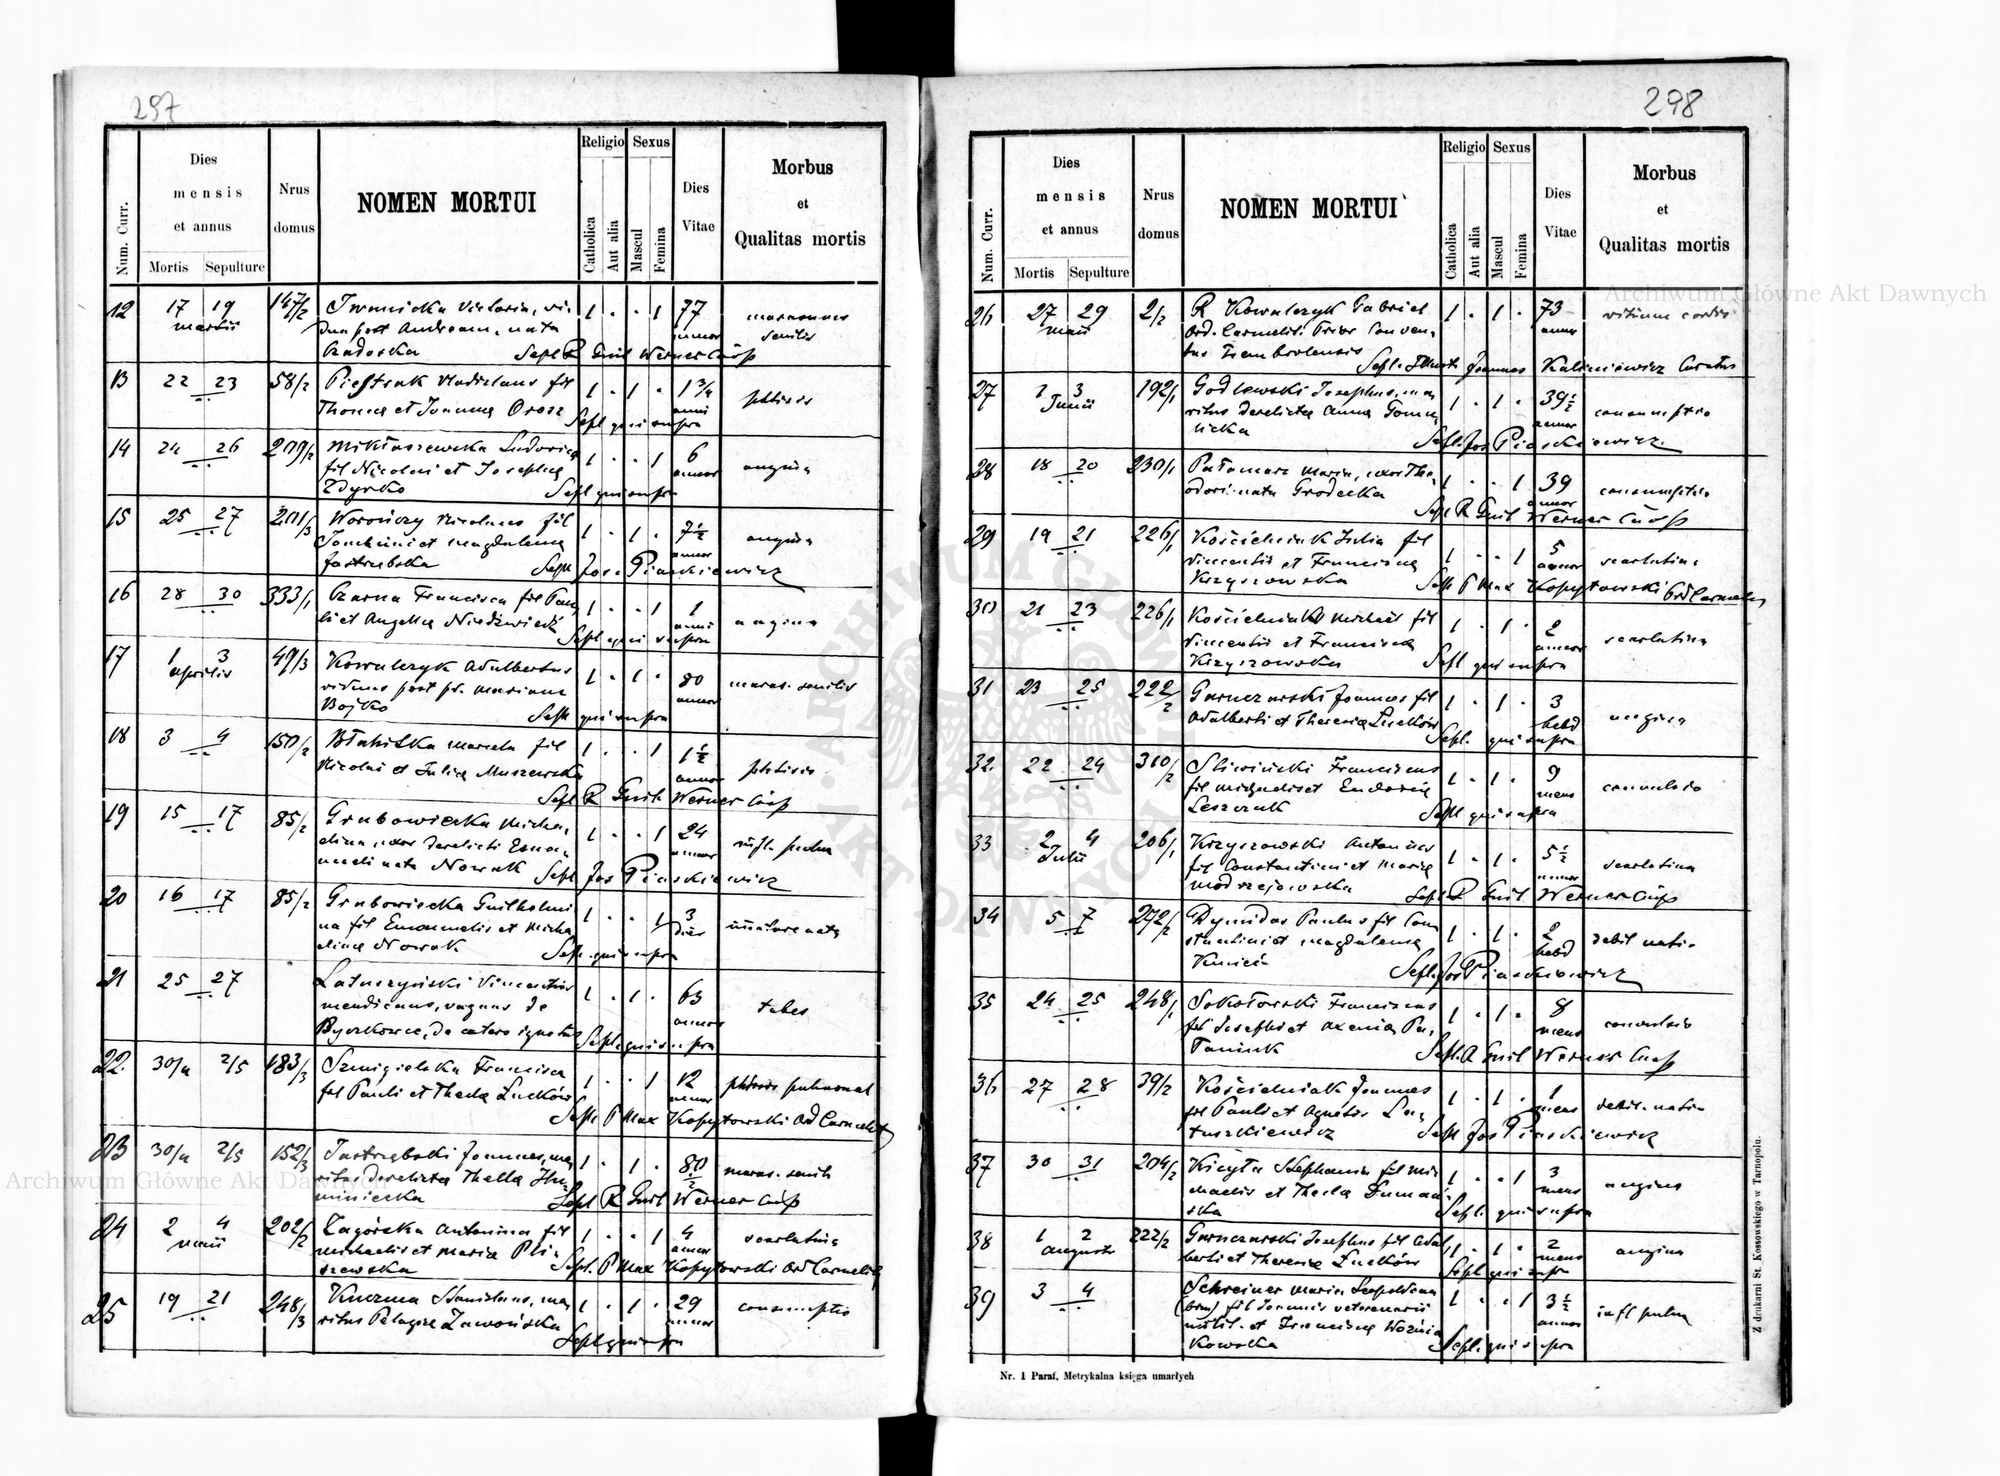 297
Num. Curr.
Dies
mensis
et annus
Mortis Sepulture
Nrus
domus
NOMEN MORTUI
Religio
Catholica
Aut alia
Sexus
Mascul
Femina
Dies
Vitae
Morbus
et
Qualitas mortis
12 17 19 147/2 Iwanicka Victoria, vi- 1 . . 1 77 marasmus
martii dua post Andream, nata annor senilis
Czadoska Sepl R Guil Werner
13 22 23 58/2 Pietrak Vladislaus fil 1 . 1 . 1 3/4 phtisis
Thoma et Joanna Orosz anni
Sepl qui supra
14 24 26 209/2 Mikłaszewska Ludovica 1 . . 1 6 angina
fil Nicolai et Josepha annor
Zdyrko Sepl qui supra
15 25 27 201/3 Worończy Nicolaus fil 1 . 1 . 7 1/2 angina
et Magdalena annor
Jastrzębska Sepl Jos. Piaskiewicz
16 28 30 333/1 Czarna Francisca fil Pau- 1 . . 1 1 angina
li et Angela Niedźwiedź anni
Sepl qui supra
17 1 3 49/3 Kowalczyk Adalbertus 1 . 1 . 80 maras. senilis
aprilis viduus post Mariam annor
Bojko Sepl qui supra
18 3 4 150/2 Marcela fil 1 . . 1 1 1/2 phtisis
Nicolai et Julia Muszewska annor
Sepl R Guil Werner
19 15 17 85/2 Grabowiecka Micha- 1 . . 1 24 infl. pulm
elina, uxor derelicti Ema- annor
nueli nata Nowak Sepl Jos Piaskiewicz
20 16 17 85/2 Grabowiecka Guilhelmi- 1 . . 1 3
na fil Emanuelis et Micha- dies
elina Nowak Sepl. qui supra
21 25 27 Latuszyński Vincentius 1 . 1 . 63 tabes
mendicans, vagans de annor
Byczkowce, de cetero ignotus Sepl. qui supra
22. 30/4 2/5 183/3 Szmigielska Francisca 1 . . 1 12 phtisis pulmonal
fil Pauli et Thecla Żuków annor
Sepl P Max Kopytowski Ord Carmelit
23 30/4 2/5 152/3 Jastrzębski Joannes, ma- 1 . 1 . 80 maras. senil
ritus derelicta Thecla
Sepl R Guil Werner
24 2 4 202/2 Zagórska Antonina fil 1 . . 1 4 scarlatina
maii Michaelis et Maria Pli- annor
szewska Sepl. P Max Kopytowski Ord Carmelit
25 19 21 248/3 Kuczma Stanislaus, ma- 1 . 1 . 29 consumptio
ritus Pelagia Zawońska annor
Sepl qui supra
298
Num. Curr.
Dies
mensis
et annus
Mortis Sepulture
Nrus
domus
NOMEN MORTUI
Religio
Catholica
Aut alia
Sexus
Mascul
Femina
Dies
Vitae
Morbus
et
Qualitas mortis
26 27 29 2/2 R Kowalczyk Gabriel 1 . 1 . 73 vitium cordis
maii Ord. Carmelit. Prior Conven- annor
tus Trembolensis Sepl. Illust Joannes Kaliniewicz Curatus
27 1 3 192/1 Godlewski Josephus, ma- 1 . 1 . 39 1/2 consumptio
Junii ritus derelicta Anna annor
Sepl. Jos Piaskiewicz.
28 18 20 230/1 Pałamarz Maria, uxor The- 1 . . 1 39 consumptio
odori nata Grodecka annor
Sepl R Guil Werner
29 19 21 226/1 Kościelniak Julia fil 1 . . 1 5 scarlatina
Vincentii et Francisca annor
Krzyszowska Sepl P Max Kopytowski Ord Carmelit
30 21 23 226/1 Kościelniak Michael fil 1 . 1 . 2 scarlatina
Vincentii et Francisca annor
Krzyszowska Sepl qui supra
31 23 25 222/2 Garnczarski Joannes fil 1 . 1 . 3 angina
Adalberti et Theresia Żuków hebd
Sepl. qui supra
32. 22 24 310/2 Sliwiński Franciscus 1 . 1 . 9 convulsio
fil Michaelis et Eudoxia mens
Leszczuk Sepl qui supra
33 2 4 206/1 Krzyszowski Antonius 1 . 1 . 5 1/2 scarlatina
Julii fil Constantini et Maria annor
Modrzejowska Sepl R Guil Werner
34 5 7 272/2 Dymidas Paulus fil Con- 1 . 1 . 2 debil. nati.
stantini et Magdalena hebd
Kmieć Sepl. Jos Piaskiewicz
35 24 25 248/1 Sokołowski Franciscus 1 . 1 . 8 convulsio
fil Josephi et Axenia Pa- mens
Sepl. R Guil Werner
36 27 28 39/2 Kościelniak Joannes 1 . 1 . 1 debil. nati.
fil Pauli et Agnetis La- mens
tuszkiewicz Sepl Jos Piaskiewicz
37 30 31 204/2 Kicyła Stephania fil Mi- 1 . . 1 3 angina
chaelis et Thecla Dumań- mens
ska Sepl. qui supra
38 1 2 222/2 Garnczarski Josephus fil Adal- 1 . 1 . 2 angina
augusti berti et Theresia Żuków mens
Sepl qui supra
39 3 4 Schreiner Maria Leopoldina 1 . . 1 3 1/2 infl pulm
fil Joannis veterenarii annor
milit. et Francisca Woźnia-
kowska Sepl. qui supra
Nr. 1 Paraf. Metrykalna księga umarłych
Z drukarni St. Kossowskiego w Tarnopolu.
Archiwum Główne Akt Dawnych
Archiwum Główne Akt Dawnych
ARCHIWUM GŁÓWNE AKT DAWNYCH